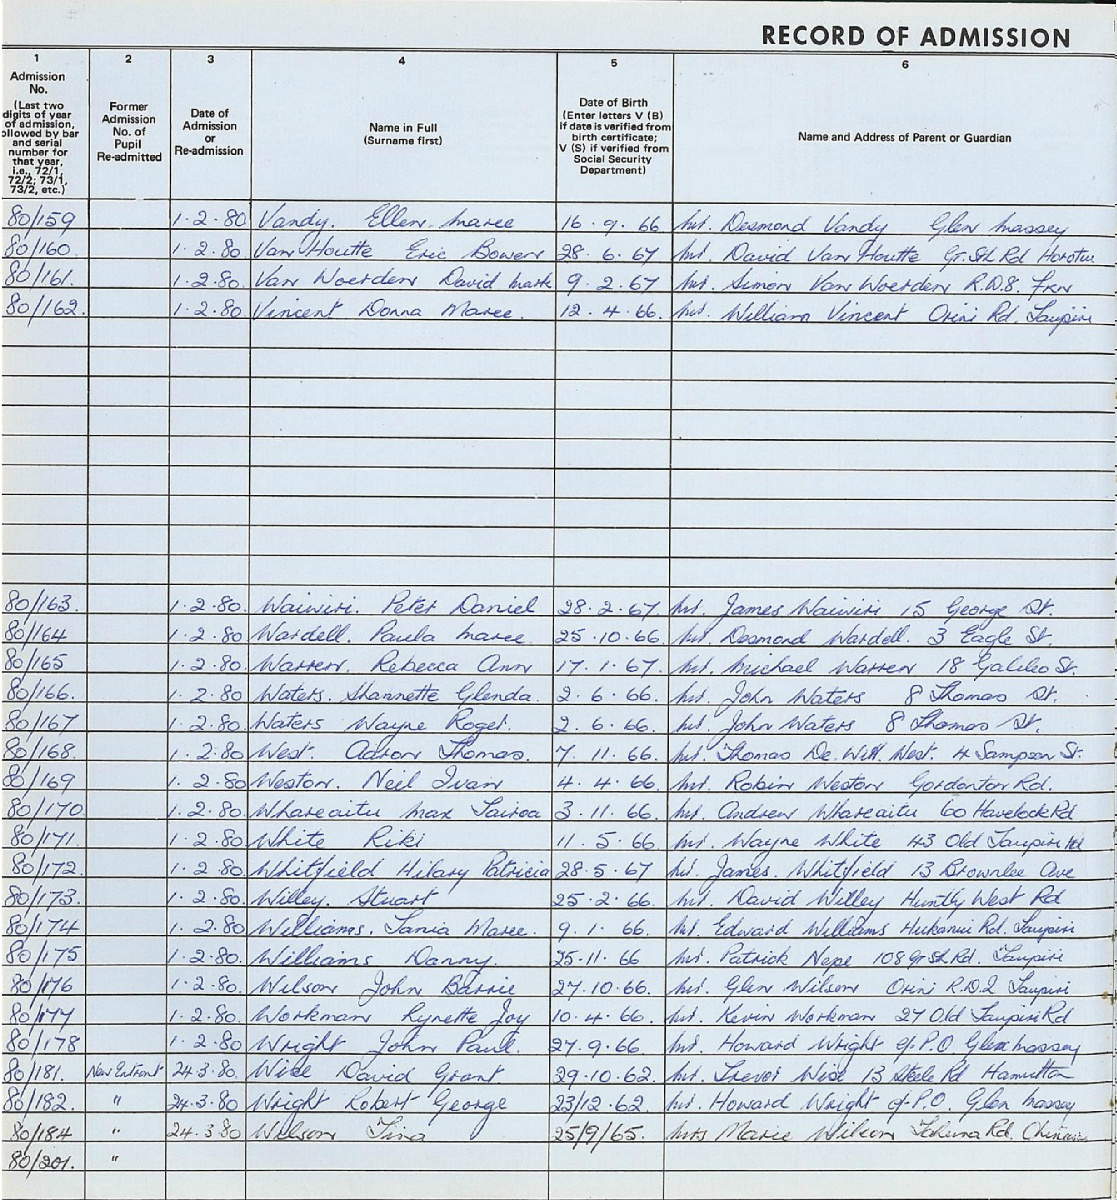 RECORD OF ADMISSION
1 2 3 4 5 6
Admission No. (Last two digits of year of admission, ollowed by bar and serial number for that year, i.e., 72/1, 72/2; 73/1, 73/2, etc.)
Former Admission No. of Pupil Re-admitted
Date of Admission or Re-admission
Name in Full (Surname first)
Date of Birth (Enter letters V (B) if date is verified from birth certificate; V (S) if verified from Social Security Department)
Name and Address of Parent or Guardian
80/159 1·2·80 Vandy. Ellen Maree 16·9·66 Mr. Desmond Vandy Glen Massey
80/160 1·2·80 Van Houtte Eric Bowen 28·6·67 Mr. David Van Houtte Gt. Sth Rd Horotiu
80/161. 1·2·80. Van Woerden David Mark 9·2·67 Mr. Simon Van Woerden R.D.8.
80/162. 1·2·80. Vincent Donna Maree. 12·4·66. Mr. William Vincent Orini Rd. Taupiri
80/163. 1·2·80. Waiwiri. Peter Daniel 28·2·67. Mr. James Waiwiri 15 George St.
80/164 1·2·80 Wardell. Paula Maree. 25·10·66. Mr. Desmond Wardell. 3 Eagle St.
80/165 1·2·80. Warren. Rebecca Ann 17·1·67. Mr. Michael Warren 18 Galileo St.
80/166. 1·2·80. Waters. Shannette Glenda. 2·6·66. Mr. John Waters 8 Thomas St.
80/167 1·2·80. Waters Wayne Roger. 2·6·66. Mr. John Waters 8 Thomas St.
80/168. 1·2·80 West. Aaron Thomas. 7·11·66. Mr. Thomas De Witt West. 4 Sampson St.
80/169 1·2·80 Weston. Neil Ivan 4·4·66. Mr. Robin Weston Gordonton Rd.
80/170 1·2·80. Whareaitu Max Tairoa 3·11·66. Mr. Andrew Whareaitu 60 Havelock Rd
80/171 1·2·80 White Riki 11·5·66 Mr. Wayne White 43 Old Taupiri Rd
80/172. 1·2·80 Whitfield Hilary Patricia 28·5·67 Mr. James. Whitfield 13 Brownlee Ave
80/173. 1·2·80 Willey. Stuart 25·2·66 Mr. David Willey Huntly West Rd
80/174 1·2·80 Williams. Tania Maree. 9·1·66 Mr. Edward Williams Hukanui Rd. Taupiri
80/175 1·2·80. Williams Danny. 25·11·66 Mr. Patrick Nepe 108 Gt Sth Rd. Taupiri
80/176 1·2·80. Wilson John Barrie 27·10·66. Mr. Glen Wilson Orini R.D.2 Taupiri
80/177 1·2·80. Workman Lynette Joy 10·4·66. Mr. Kevin Workman 27 Old Taupiri Rd
80/178 1·2·80 Wright John Paul. 27·9·66 Mr. Howard Wright c/- P.O Glen Massey
80/181. New Entrant 24·3·80. Wise David Grant 29·10·62. Mr. Trevor Wise 13 Steele Rd Hamilton
80/182. " 24·3·80 Wright Robert George 23/12·62. Mr. Howard Wright c/- P.O. Glen Massey
80/184 " 24·3·80 Wilson Tina 25/9/65. Mrs Marie Wilson Rd.
80/201. "